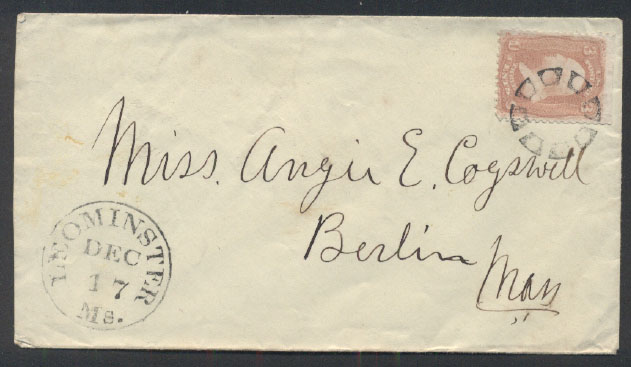 3 3
Miss. Angie E. Cogswell
Berlin
Mass
LEOMINSTER
DEC
17
Ms.